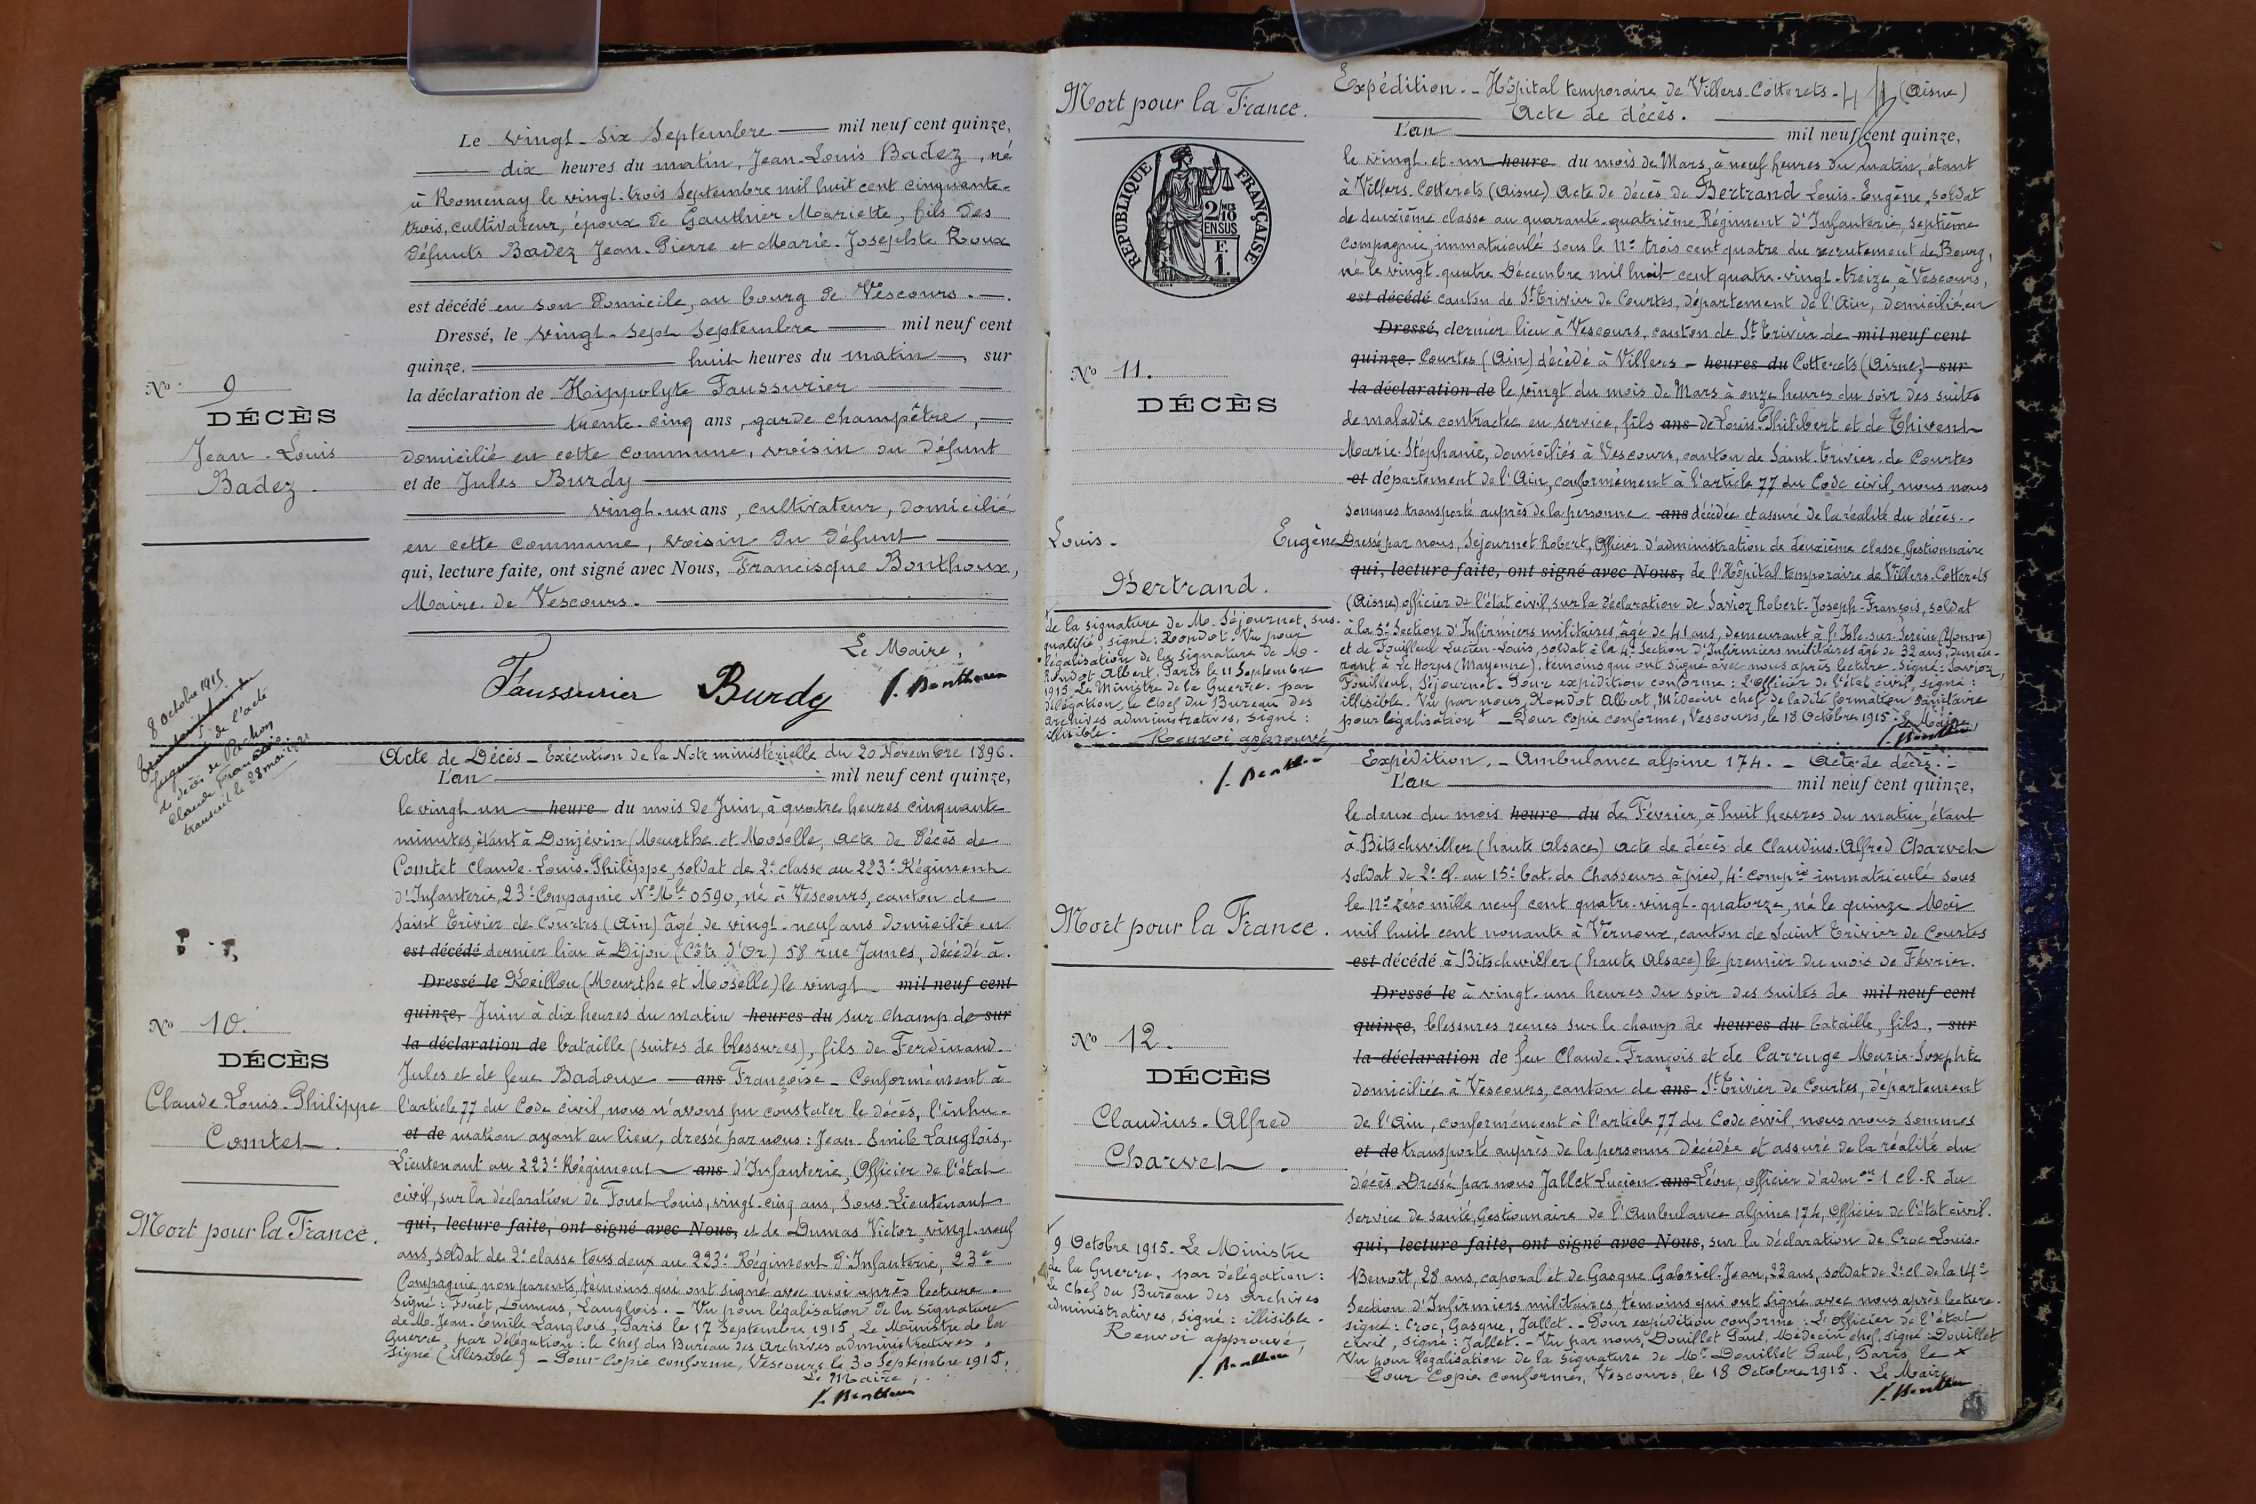 Le vingt-six Septembre mil neuf cent quinze,
dix heures du matin, Jean-Louis Badez, né
à Romenay le vingt-trois Septembre mil huit cent cinquante-
trois, cultivateur, époux de Gauthier Mariette, fils des
défunts Badez Jean-Pierre et Marie-Josephte Roux
est décédé en son domicile, au bourg de Vescours.
Dressé, le vingt-sept Septembre mil neuf cent
quinze, huit heures du matin, sur
la déclaration de Hippolyte Faussurier
trente-cinq ans, garde champêtre,
domicilié en cette commune, voisin du défunt
et de Jules Burdy
vingt-un ans, cultivateur, domicilié
en cette commune, voisin du défunt
qui, lecture faite, ont signé avec Nous, Francisque Bonthoux,
Maire de Vescours.
Le Maire,
Faussurier Burdy f. Bonthoux
No 9
DÉCÈS
Jean-Louis
Badez.
8 Octobre 1915
jugement de l'acte
de décès de Pochon
Claude François
transcrit le 28 mai 1921
Acte de Décès - Exécution de la Note ministérielle du 20 Novembre 1896.
L'an mil neuf cent quinze,
le vingt-un heure du mois de Juin, à quatre heures cinquante
minutes, étant à Donjévin (Meurthe et Moselle, acte de décès de
Comtet Claude-Louis-Philippe, soldat de 2e classe au 223e Régiment
d'Infanterie, 23e Compagnie No Mle 0590, né à Vescours, canton de
Saint Trivier de Courtes (Ain) âgé de vingt-neuf ans domicilié en
est décédé dernier lieu à Dijon (Côte d'Or) 58 rue James, décédé à
Dressé le Reillon (Meurthe et Moselle) le vingt mil neuf cent
quinze, Juin à dix heures du matin heures du sur champ de sur
la déclaration de bataille (suites de blessures), fils de Ferdinand-
Jules et de feue Badoux ans Françoise - Conformément à
l'article 77 du Code civil, nous n'avons pu constater le décès, l'inhu-
et de mation ayant eu lieu, dressé par nous: Jean-Emile Langlois,
Lieutenant au 223e Régiment ans d'Infanterie, Officier de l'état
civil, sur la déclaration de Fouet Louis, vingt-cinq ans, Sous-Lieutenant
qui, lecture faite, ont signé avec Nous, et de Dumas Victor, vingt-neuf
ans, soldat de 2e classe tous deux au 223e Régiment d'Infanterie, 23e
Compagnie non parents, témoins qui ont signé avec moi après lecture.
Signé: Fouet, Dumas, Langlois. - Vu pour légalisation de la signature
de M. Jean-Emile Langlois, Paris le 17 Septembre 1915, Le Ministre de la
Guerre, par délégation: le chef du Bureau des Archives administratives,
Signé (illisible) - Pour Copie conforme, Vescours, le 30 Septembre 1915,
Le Maire,
f. Bonthoux
No 10.
DÉCÈS
Claude-Louis-Philippe
Comtet.
Mort pour la France.
Mort pour la France.
RÉPUBLIQUE FRANÇAISE
2/10
EN SUS
F.
1.
No 11.
DÉCÈS
Louis- Eugène
Bertrand.
de la signature de M. Séjournet, sus-
qualifié, signé: Rondot. Vu pour
légalisation de la signature de M.
Rondot Albert, Paris le 11 Septembre
1915. Le Ministre de la Guerre. par
délégation, le Chef du Bureau des
archives administratives, signé:
illisible. Renvoi approuvé,
f. Bonthoux
Expédition. - Hôpital temporaire de Villers-Cotterets - 4 (Aisne)
Acte de décès.
L'an mil neuf cent quinze,
le vingt-et-un heure du mois de Mars, à neuf heures du matin, étant
à Villers-Cotterets (Aisne) Acte de décès de Bertrand Louis-Eugène, soldat
de deuxième classe au quarante-quatrième Régiment d'Infanterie, septième
compagnie, immatriculé sous le No trois cent quatre du recrutement de Bourg,
né le vingt-quatre Décembre mil huit cent quatre-vingt-treize à Vescours,
est décédé canton de St Trivier de Courtes, département de l'Ain, domicilié en
Dressé, dernier lieu à Vescours, canton de St Trivier de mil neuf cent
quinze. Courtes (Ain) décédé à Villers - heures du Cotterets (Aisne) sur
la déclaration de le vingt du mois de Mars à onze heures du soir des suites
de maladie contractée en service, fils ans de Louis-Philibert et de Thivent
Marie-Stéphanie, domiciliés à Vescours, canton de Saint-Trivier-de Courtes
et département de l'Ain, conformément à l'article 77 du Code civil, nous nous
sommes transporté auprès de la personne ans décédée et assuré de la réalité du décès.
Dressé par nous, Séjournet Robert, Officier d'administration de deuxième classe, Gestionnaire
qui, lecture faite, ont signé avec Nous, de l'Hôpital temporaire de Villers-Cotterets
(Aisne) officier de l'état civil, sur la déclaration de Savioz Robert-Joseph-François, soldat
à la 5e Section d'Infirmiers militaires âgé de 41 ans, demeurant à l'Isle-sur-Serein (Yonne)
et de Fouilleul Lucien-Louis, soldat à la 4e Section d'Infirmiers militaires âgé de 32 ans, demeu-
rant à Le Horps (Mayenne), témoins qui ont signé avec nous après lecture. Signé: Savioz,
Fouilleul, Séjournet. Pour expédition conforme: l'Officier de l'état civil, signé:
illisible. Vu par nous, Rondot Albert, Médecin chef de la dite formation sanitaire
pour légalisation + - Pour copie conforme, Vescours, le 18 Octobre 1915. Le Maire,
f. Bonthoux
Expédition. - Ambulance alpine 174. - Acte de décès. -
L'an mil neuf cent quinze,
le deux du mois heure du de Février, à huit heures du matin, étant
à Bitschwiller (haute Alsace) acte de décès de Claudius-Alfred Charvet
soldat de 2e cl. au 15e bat. de Chasseurs à pied, 4e compie immatriculé sous
le No zéro mille neuf cent quatre-vingt-quatorze, né le quinze Mai
mil huit cent nonante à Vernoux, canton de Saint Trivier de Courtes
est décédé à Bitschwiller (haute Alsace) le premier du mois de Février.
Dressé le à vingt-une heures du soir des suites de mil neuf cent
quinze, blessures reçues sur le champ de heures du bataille, fils, sur
la déclaration de feu Claude-François et de Carruge Marie-Josephte
domiciliée à Vescours, canton de ans St Trivier de Courtes, département
de l'Ain, conformément à l'article 77 du Code civil nous nous sommes
et de transporté auprès de la personne décédée et assuré de la réalité du
décès. Dressé par nous Jallet Lucien ans Léon, officier d'admon 1 cl. R du
service de santé, Gestionnaire de l'Ambulance alpine 174, Officier de l'état civil.
qui, lecture faite, ont signé avec Nous, sur la déclaration de Croc Louis-
Benoît, 28 ans, caporal et de Gasque Gabriel-Jean, 23 ans, soldat de 2e cl de la 14e
Section d'Infirmiers militaires, témoins qui ont signé avec nous après lecture.
signé: Croc, Gasque, Jallet. - Pour expédition conforme: L'Officier de l'état
civil, signé: Jallet. - Vu par nous, Douillet Paul, Médecin chef, signé: Douillet
Vu pour légalisation de la signature de Mr Douillet Paul, Paris, le ×
Pour Copie conforme, Vescours, le 18 Octobre 1915. Le Maire,
f. Bonthoux
Mort pour la France.
No 12.
DÉCÈS
Claudius-Alfred
Charvet.
9 Octobre 1915. Le Ministre
de la Guerre, par délégation:
Le Chef du Bureau des Archives
administratives, signé: illisible.
Renvoi approuvé,
f. Bonthoux